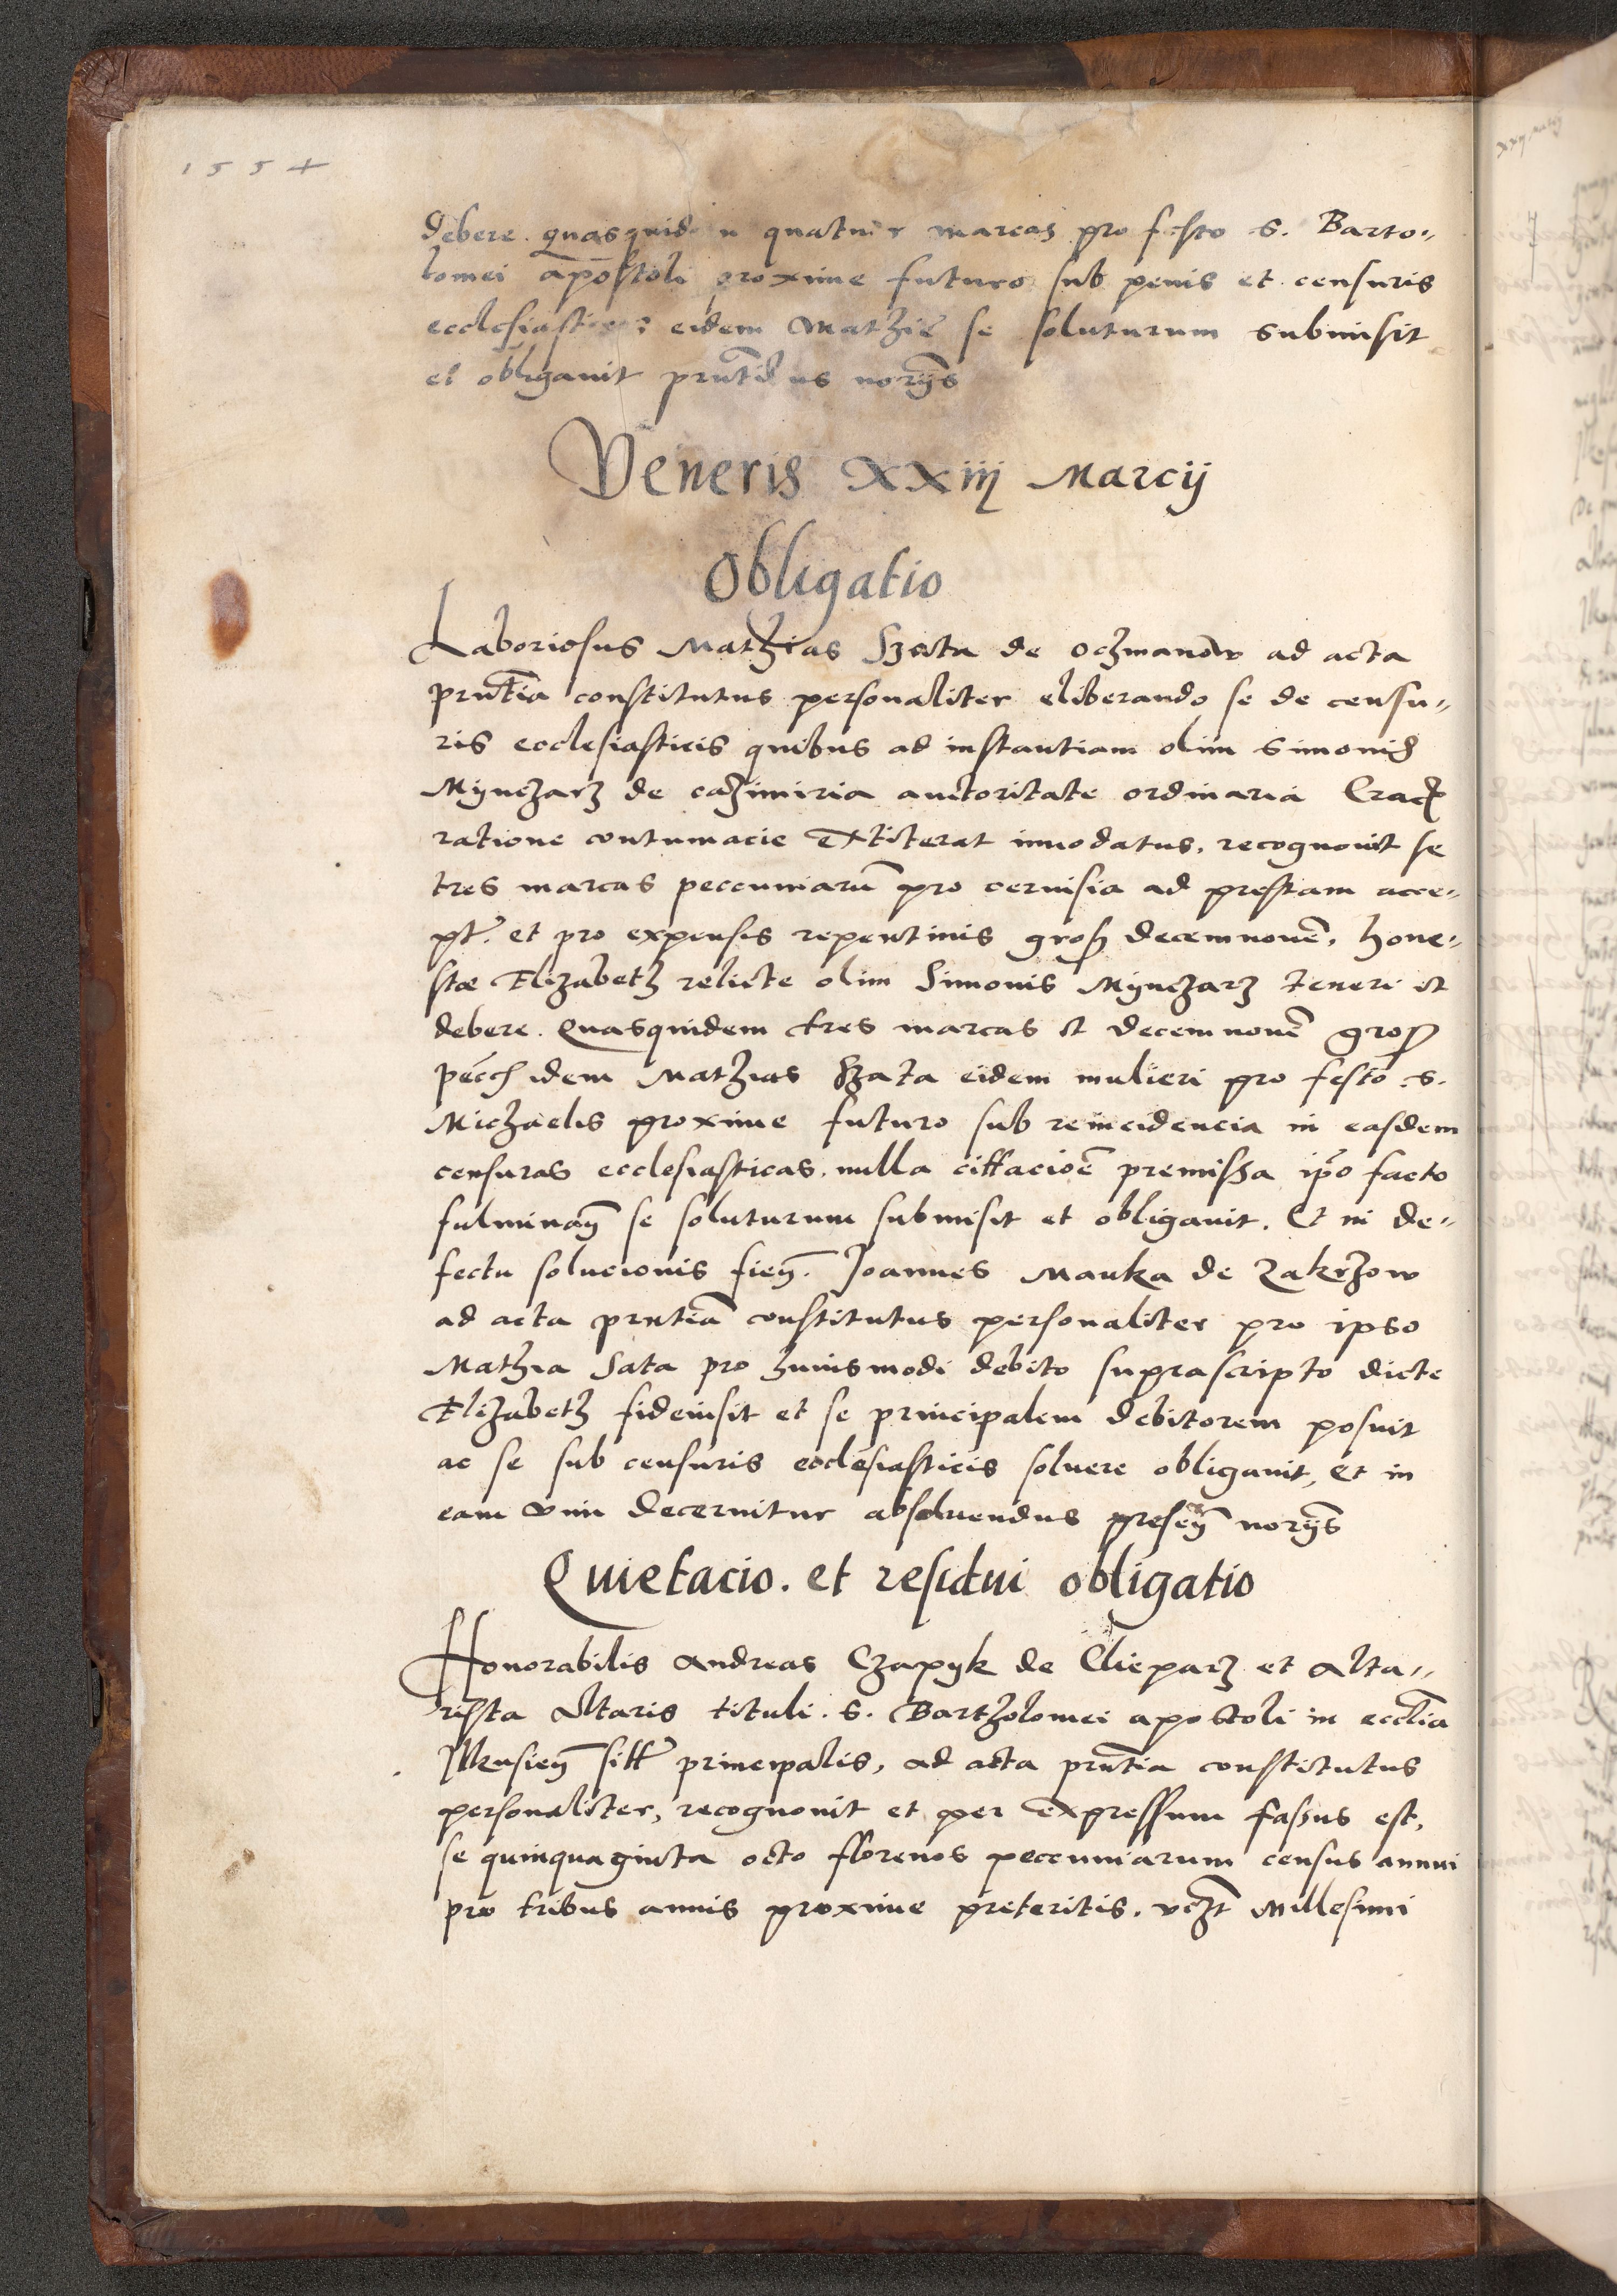 1554
debere. quasquidem quatuor marcas pro festo S. Barto„
lomei apostoli proxime futuro sub penis et censuris
ecclesiasticis eidem Mathie se soluturum submisit
et obligauit prntibus norijs
Veneris XXiij Marcij
Obligatio
Laboriosus Mathias Szata de Oczmanow ad acta
prntia constitutus personaliter eliberando se de censu„
ris ecclesiasticis quibus ad instantiam olim Simonis
Mynczarz de Cazimiria auctoritate ordinaria Crac
ratione contumacie extiterat innodatus, recognouit se
tres marcas peccuniaru pro ceruisia ad prestam acce„
pt. et pro expensis repentinis gros decemnoue, hone„
stæ Elizabeth relicte olim Simonis Mynczarz teneri et
debere. Quasquidem tres marcas et decemnoue gros
pecc idem Mathias Szata eidem mulieri pro festo S.
Michaelis proxime futuro sub reincidencia in easdem
censuras ecclesiasticas, nulla cittacioe premissa ipo facto
fulminan se soluturum submisit et obligauit. Et in de„
fectu solucionis fien. Joannes Mauka de Zakrzow
ad acta prntia constitutus personaliter pro ipso
Mathia Sata pro huiusmodi debito suprascripto dicte
Elizabeth fideiusit et se principalem debitorem posuit
ac se sub censuris ecclesiasticis soluere obligauit, Et in
eam vim decernitur absoluendus presen norijs
Quietacio. et residui obligatio
Honorabilis Andreas Czapyk de Clieparz et Alta„
rista Altaris tituli. S. Bartholomei apostoli in ecclia
Ilkusien sitt principalis, ad acta prntia constitutus
personaliter, recognouit et per expressum fassus est,
se quinquaginta octo florenos peccuniarum census annui
pro tribus annis proxime preteritis. vczt Millesimi